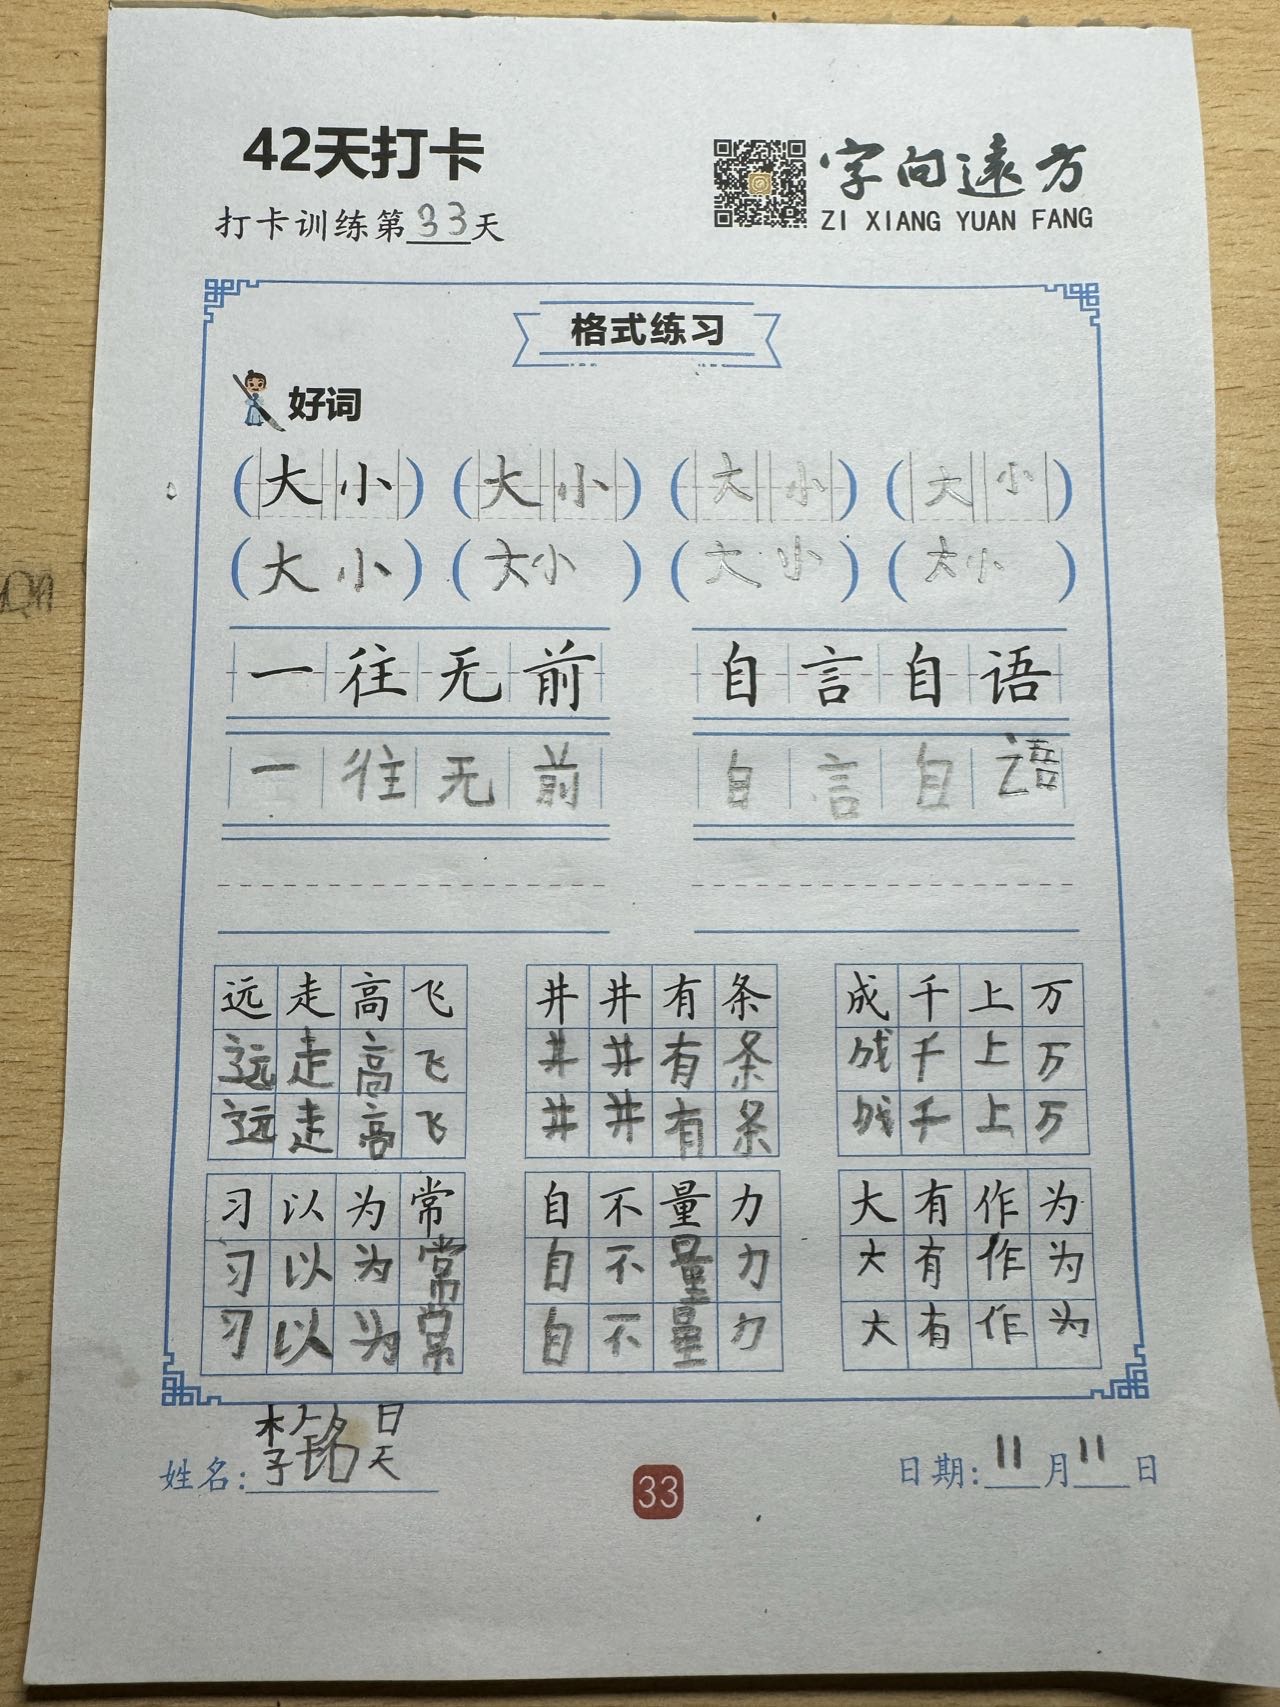 42天打卡
字向远方
ZI XIANG YUAN FANG
打卡训练第33天
格式练习
好词
(大小) (大小) (大小) (大小)
(大小) (大小) (大小) (大小)
一往无前 自言自语
一往无前 自言自语
远走高飞 井井有条 成千上万
远走高飞 井井有条 成千上万
远走高飞 井井有条 成千上万
习以为常 自不量力 大有作为
习以为常 自不量力 大有作为
习以为常 自不量力 大有作为
姓名:李铭昊
日期:11月11日
33